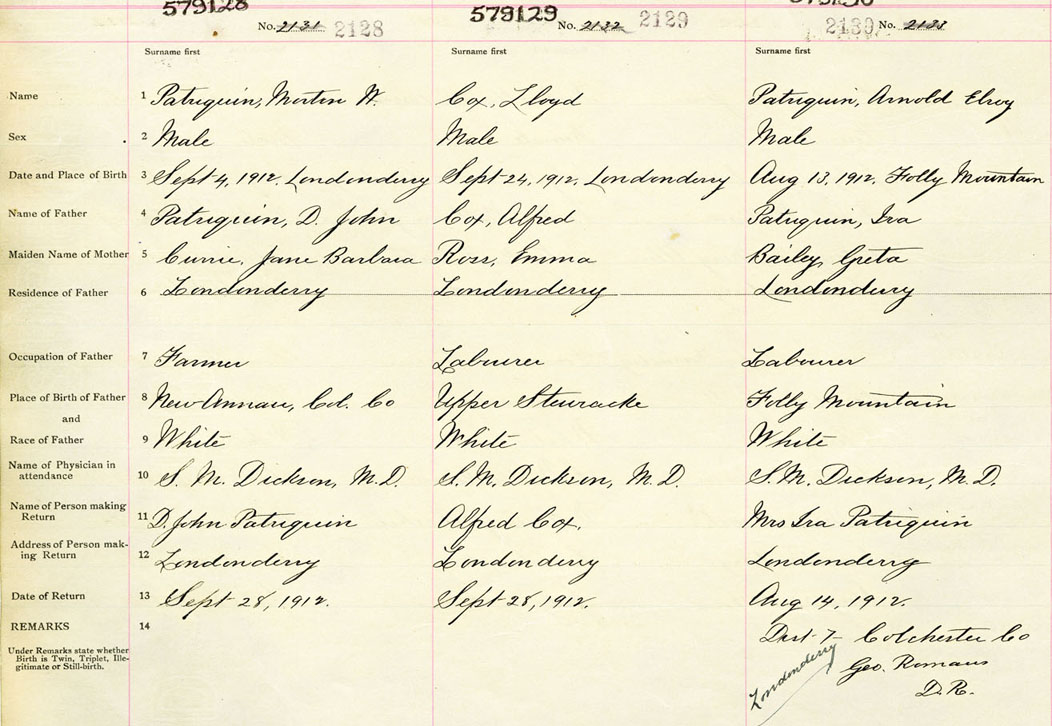 579128 579129
No. 2131 2128 No. 2132 2129 2130 No. 2133
Surname first Surname first Surname first
Name 1 Patriquin, Morton W. Cox, Lloyd Patriquin, Arnold Elroy
Sex 2 Male Male Male
Date and Place of Birth 3 Sept 4, 1912. Londonderry Sept 24, 1912, Londonderry Aug 13, 1912. Folly Mountain
Name of Father 4 Patriquin, D. John Cox, Alfred Patriquin, Ira
Maiden Name of Mother 5 Currie, Jane Barbara Ross, Emma Bailey, Greta
Residence of Father 6 Londonderry Londonderry Londonderry
Occupation of Father 7 Farmer Labourer Labourer
Place of Birth of Father 8 New Annan, Col. Co Upper Stewiacke Folly Mountain
and
Race of Father 9 White White White
Name of Physician in
attendance 10 S. M. Dickson, M.D. S. M. Dickson, M.D. S. M. Dickson, M.D.
Name of Person making
Return 11 D. John Patriquin Alfred Cox. Mrs Ira Patriquin
Address of Person mak-
ing Return 12 Londonderry Londonderry Londonderry
Date of Return 13 Sept 28, 1912. Sept 28, 1912. Aug 14, 1912.
REMARKS 14
Under Remarks state whether
Birth is Twin, Triplet, Ille-
gitimate or Still-birth.
Dist. 7 Colchester Co
Londonderry
Geo. Romans
D.R.